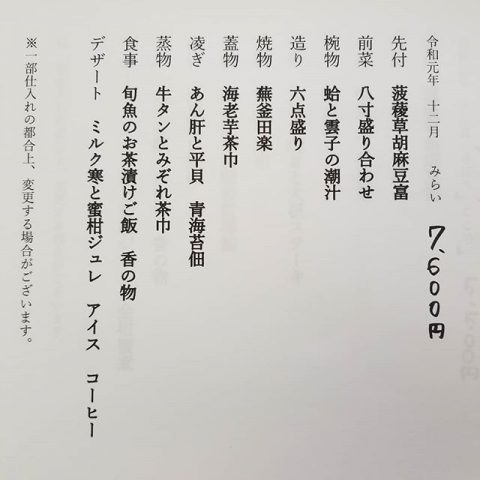 令和元年 十二月 みらい 7,600円
先付 菠薐草胡麻豆富
前菜 八寸盛り合わせ
椀物 蛤と雲子の潮汁
造り 六点盛り
焼物 蕪釜田楽
蓋物 海老芋茶巾
凌ぎ あん肝と平貝 青海苔佃
蒸物 牛タンとみぞれ茶巾
食事 旬魚のお茶漬けご飯 香の物
デザート ミルク寒と蜜柑ジュレ アイス コーヒー
※一部仕入れの都合上、変更する場合がございます。